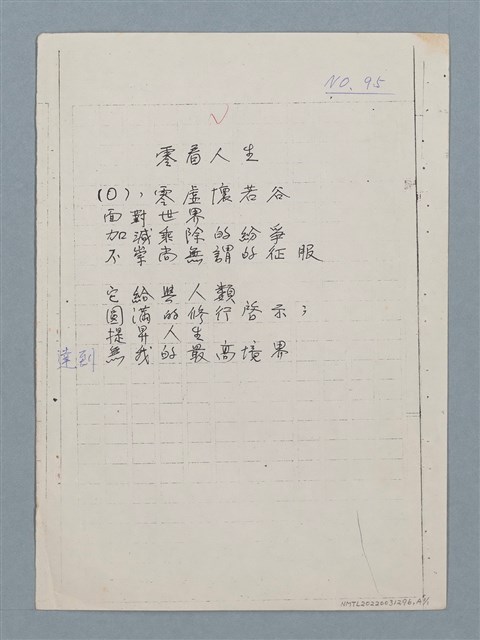 NO. 95
零看人生
(0)，零虛壞若谷
面對世界
加減乘除的紛爭
不崇尚無謂的征服
它給與人類
圓滿的修行啓示；
提昇人生
達到無我的最高境界
NMTL20220031296